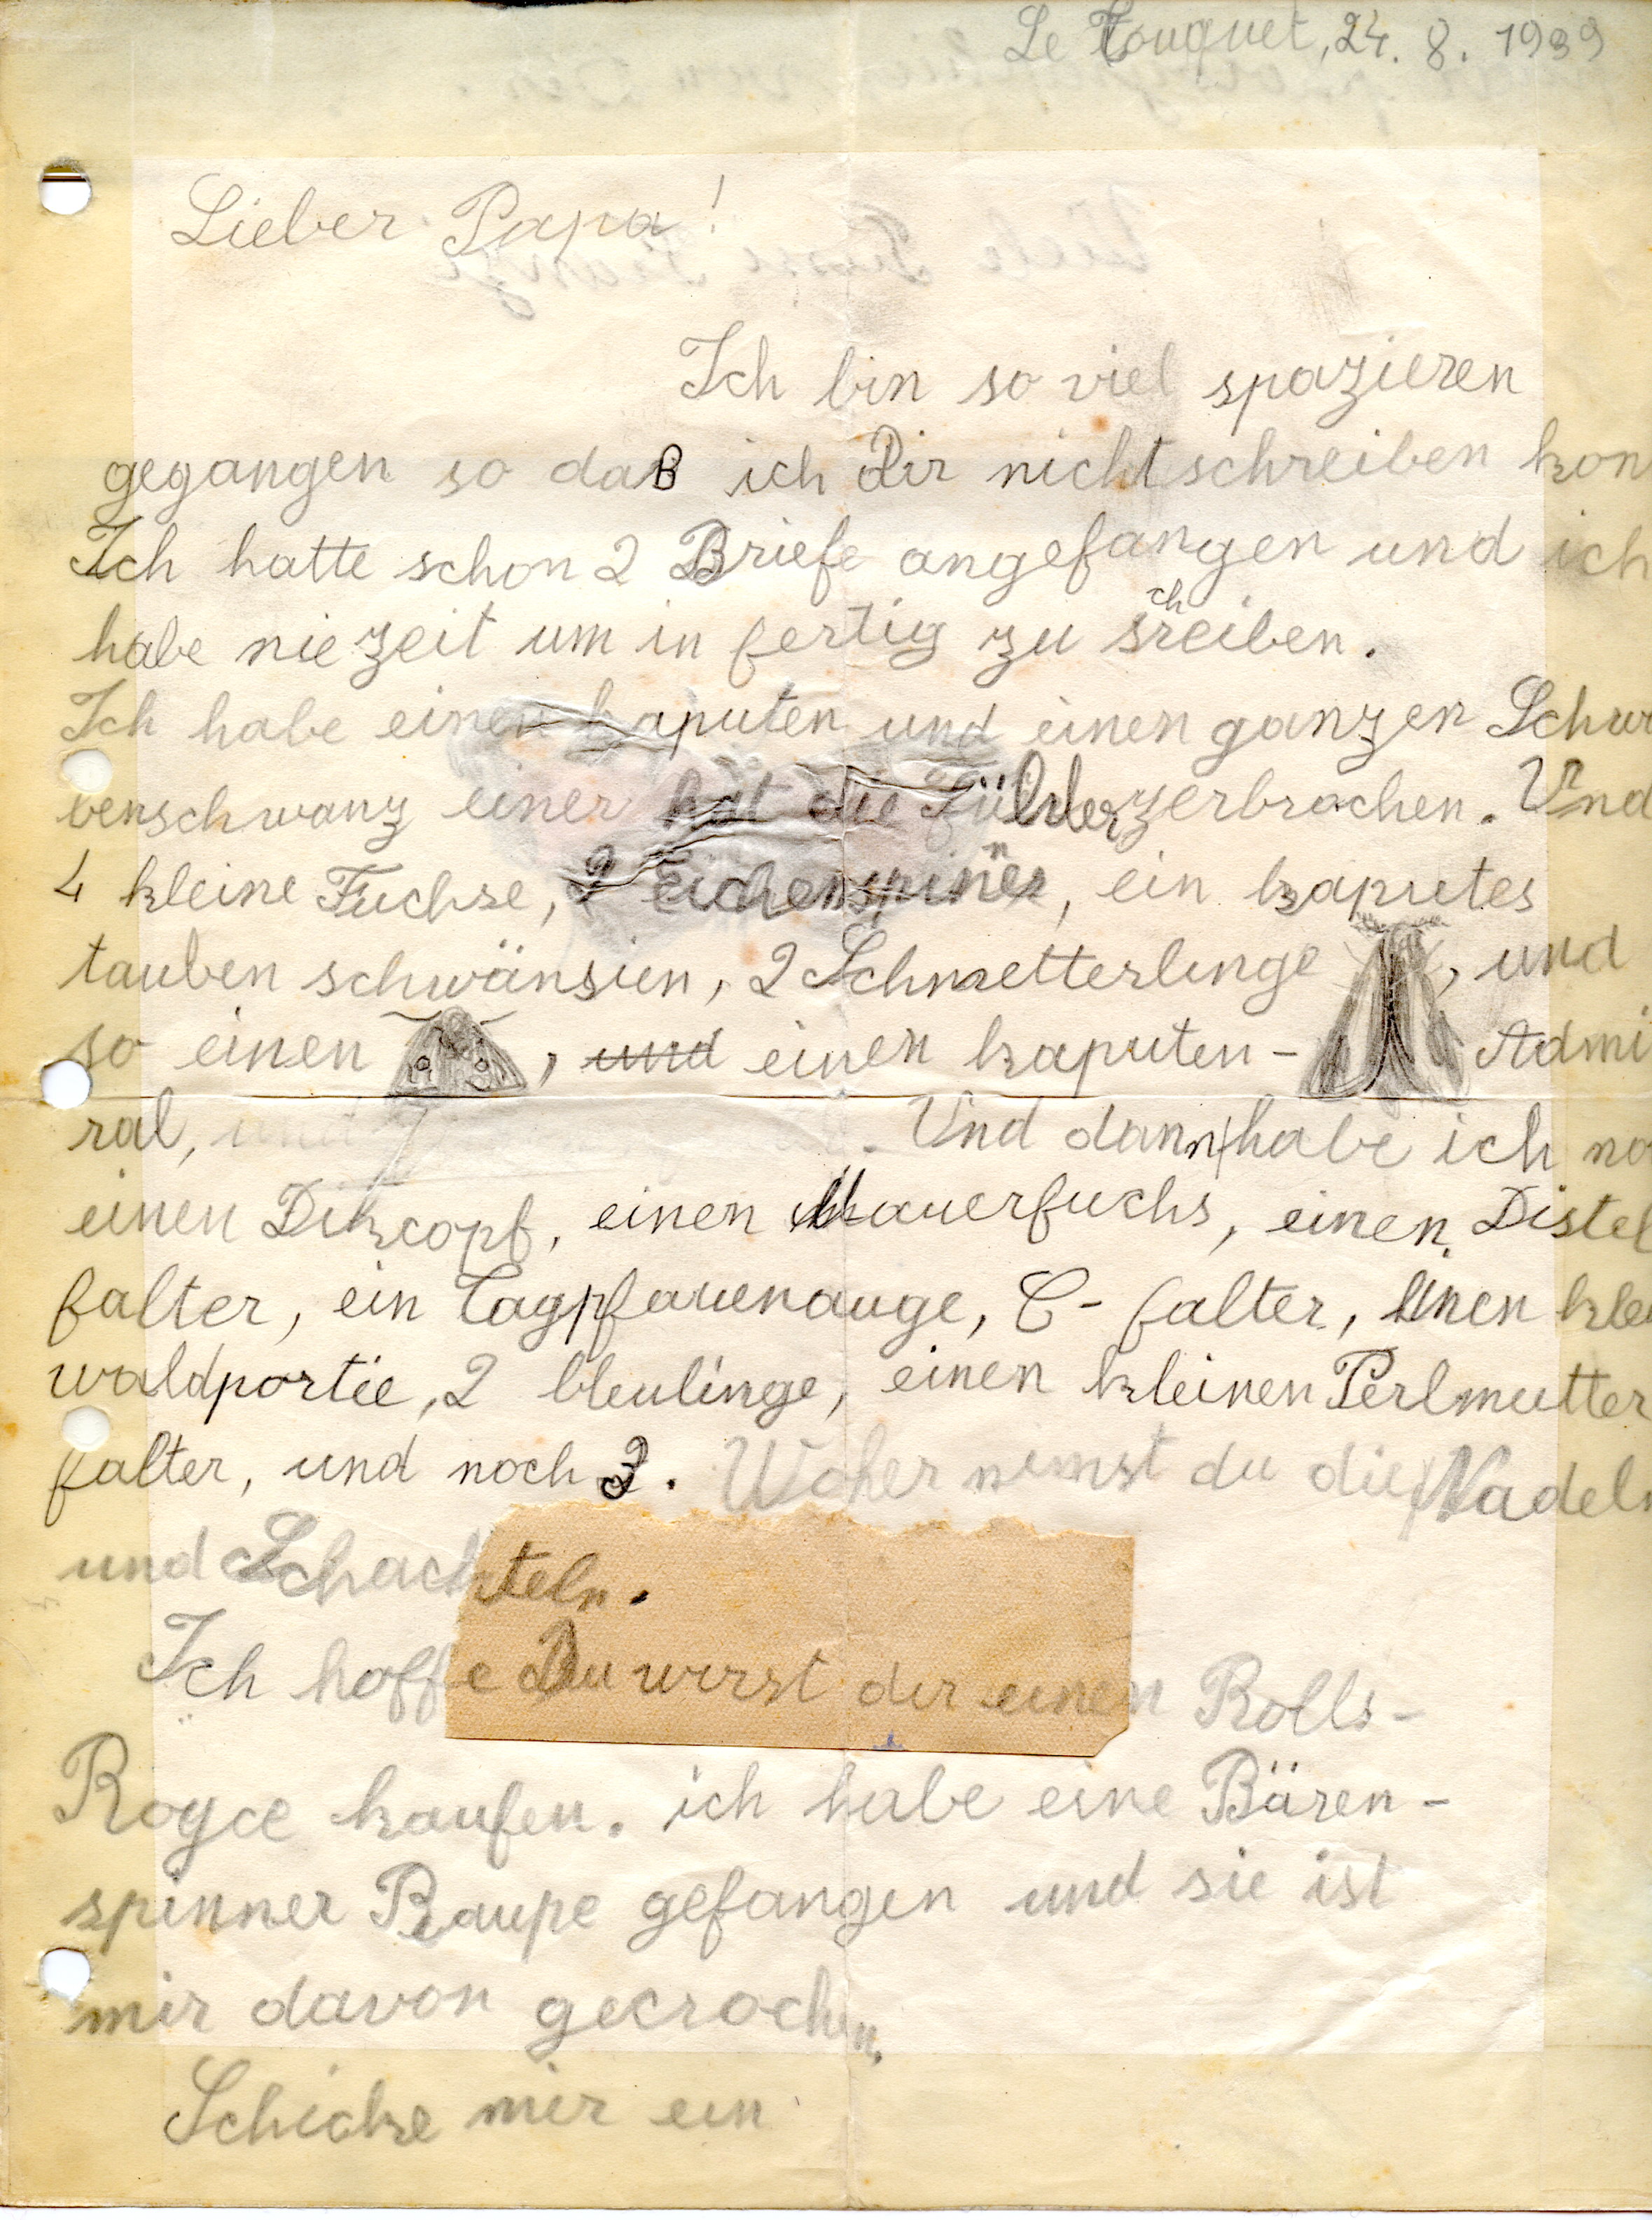 Le Touquet, 24. 8. 1939
Lieber Papa!
Ich bin so viel spazieren
gegangen so daß ich Dir nicht schreiben kon
Ich hatte schon 2 Briefe angefangen und ich
habe nie zeit um in fertig zu schreiben.
Ich habe einen kaputen und einen ganzen Schw
benschwanz einer hat die Fühler zerbrochen. Und
4 kleine Fuchse, 2 Eichenspinner, ein kaputes
tauben schwänsien, 2 Schmetterlinge , und
so einen , und einen kaputen - Admi
ral, und Und dann habe ich no
einen Dikcopf, einen Mauerfuchs, einen Distel
falter, ein Tagpfauenauge, C- falter, einen klei
waldportie, 2 bleulinge, einen kleinen Perlmutter
falter, und noch 3. Woher nimst du die Nadeln
und Schachteln.
Ich hoffe Du wirst dir einen Rolls-
Royce kaufen. ich habe eine Bären-
spinner Raupe gefangen und sie ist
mir davon gecrochen.
Schicke mir ein